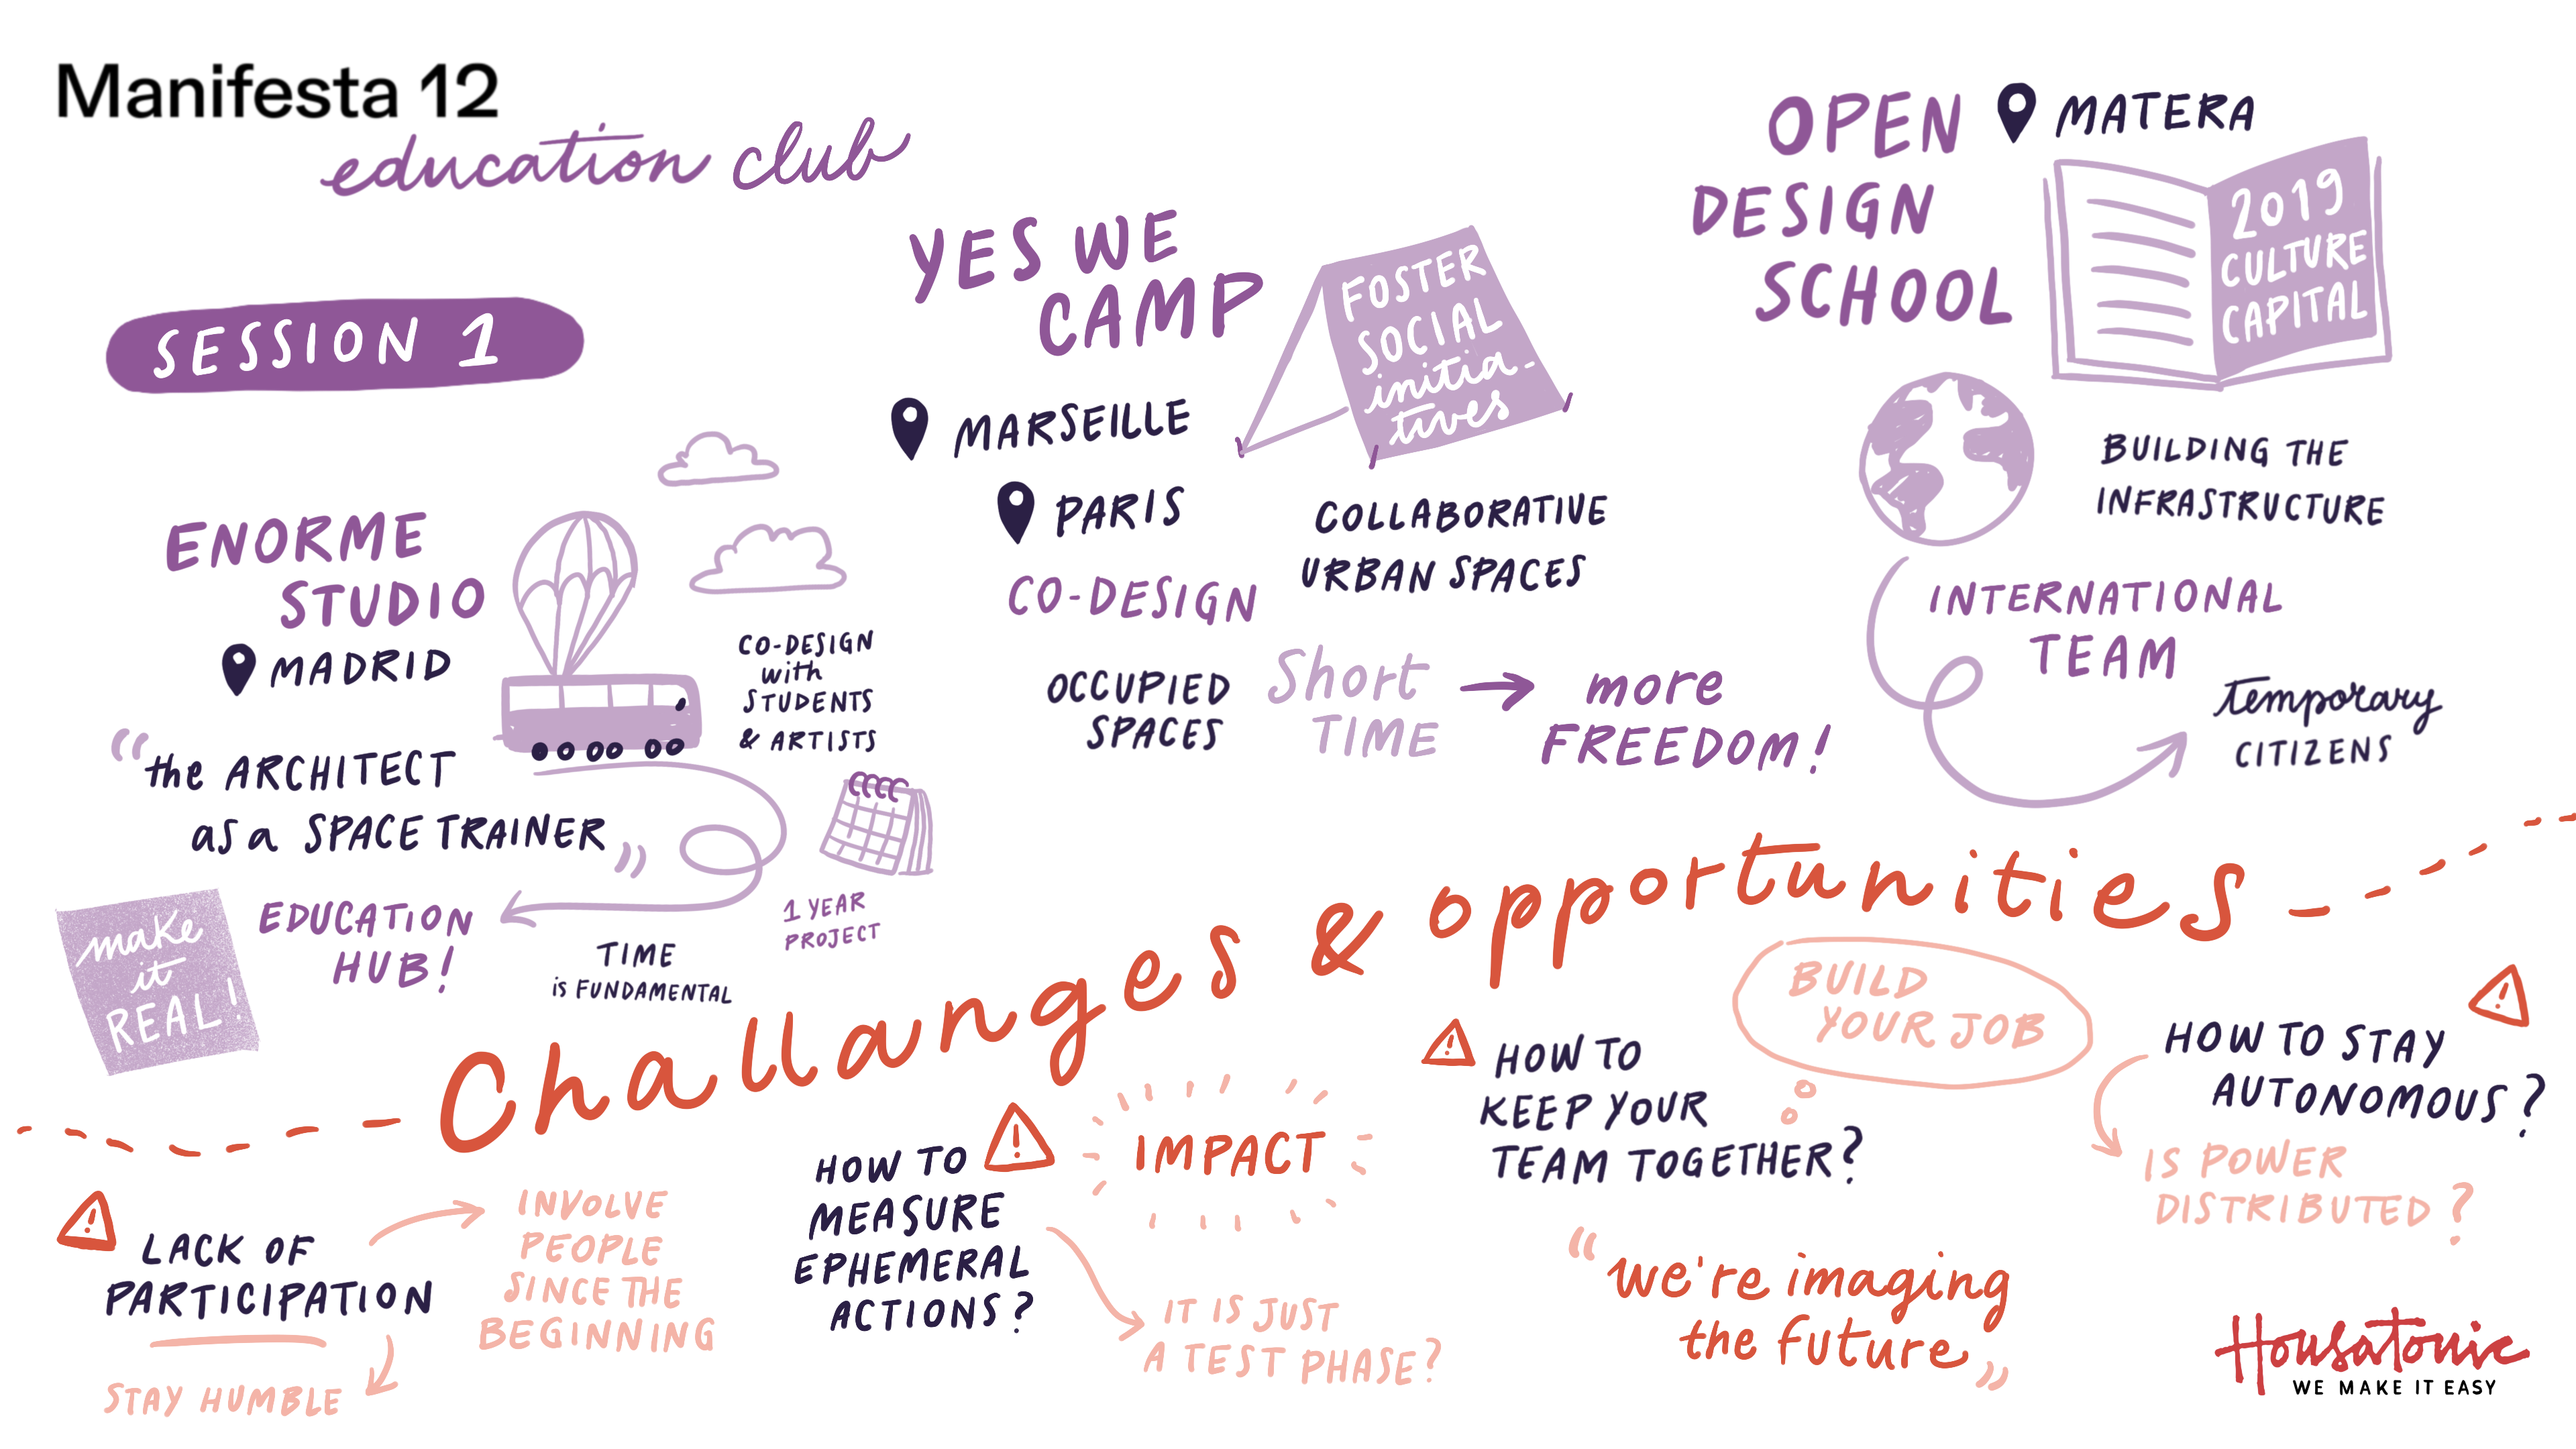 Manifesta 12
education club
SESSION 1
ENORME
STUDIO
MADRID
“the ARCHITECT
as a SPACE TRAINER”
CO-DESIGN
with
STUDENTS
& ARTISTS
1 YEAR
PROJECT
make
it
REAL!
EDUCATION
HUB!
TIME
is FUNDAMENTAL
YES WE
CAMP
FOSTER
SOCIAL
initia-
tives
MARSEILLE
PARIS
CO-DESIGN
COLLABORATIVE
URBAN SPACES
OCCUPIED
SPACES
Short
TIME
→
more
FREEDOM!
OPEN
DESIGN
SCHOOL
MATERA
2019
CULTURE
CAPITAL
BUILDING THE
INFRASTRUCTURE
INTERNATIONAL
TEAM
temporary
CITIZENS
Challanges & opportunities
LACK OF
PARTICIPATION
INVOLVE
PEOPLE
SINCE THE
BEGINNING
STAY HUMBLE
HOW TO
MEASURE
EPHEMERAL
ACTIONS?
IMPACT
IT IS JUST
A TEST PHASE?
HOW TO
KEEP YOUR
TEAM TOGETHER?
BUILD
YOUR JOB
“we're imaging
the future”
HOW TO STAY
AUTONOMOUS?
IS POWER
DISTRIBUTED?
Housatonic
WE MAKE IT EASY